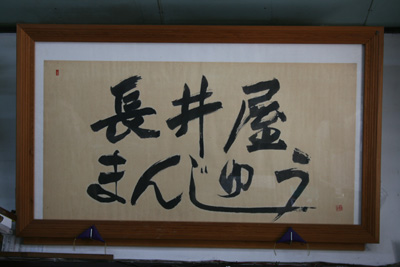 長井屋
まんじゅう